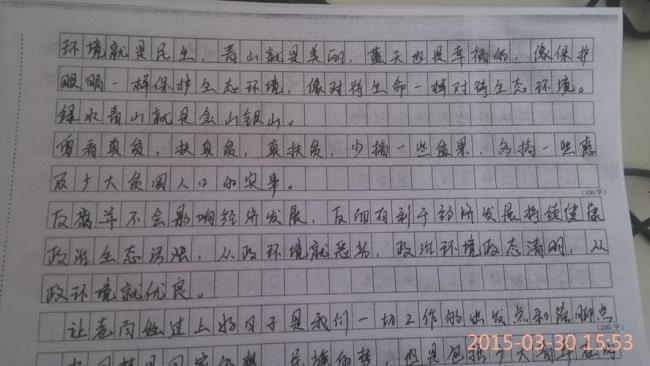 环境就是民生，青山就是美丽，蓝天也是幸福的，像保护
眼睛一样保护生态环境，像对待生命一样对待生态环境。
绿水青山就是金山银山。
要看真贫，扶真贫，真扶贫，少搞一些盆景，多搞一些惠
及广大贫困人口的实事。
(100字)
反腐并不会影响经济发展，反而有利于经济发展持续健康
政治生态污浊，从政环境就恶劣，政治环境政态清明，从
政环境就优良。
让老百姓过上好日子是我们一切工作的出发点和落脚点
(200字)
2015-03-30 15:53